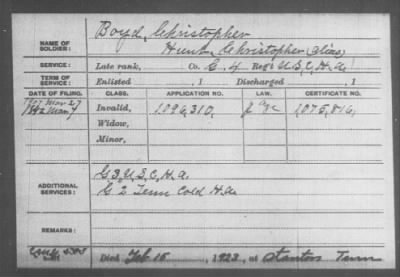 NAME OF SOLDIER: Boyd, Christopher
Hunt, Christopher (alias)
SERVICE: Late rank, Co. C. 4 Reg't U.S.C.H.a.
TERM OF SERVICE: Enlisted , 1 Discharged , 1
DATE OF FILING. CLASS. APPLICATION NO. LAW. CERTIFICATE NO.
1907 Mar 27
Invalid, 1,096,310, 1,075,816,
Widow,
Minor,
ADDITIONAL SERVICES: G 3, U.S.C.H.a.
G 2 Tenn Cold H.a.
REMARKS:
Died Feb 15 , 1923, at Stanton Tenn